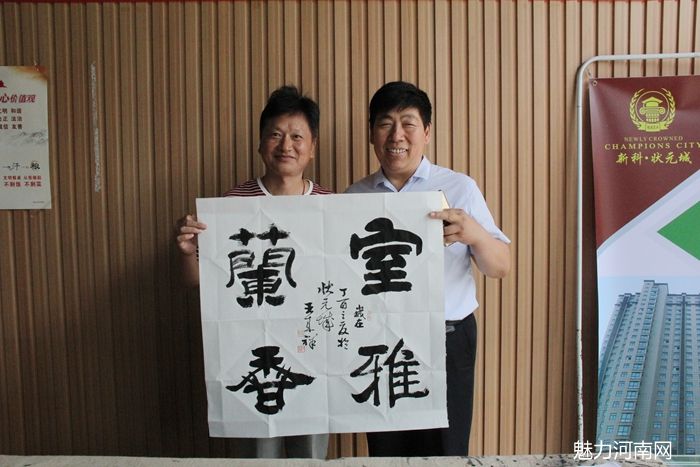 心价值观
明 和谐
正 法治
信 友善
不剩饭 不剩菜
室雅
蘭香
歲在
丁酉之夏於
状元城
NEWLY CROWNED
CHAMPIONS CITY
新科·状元城
魅力河南网